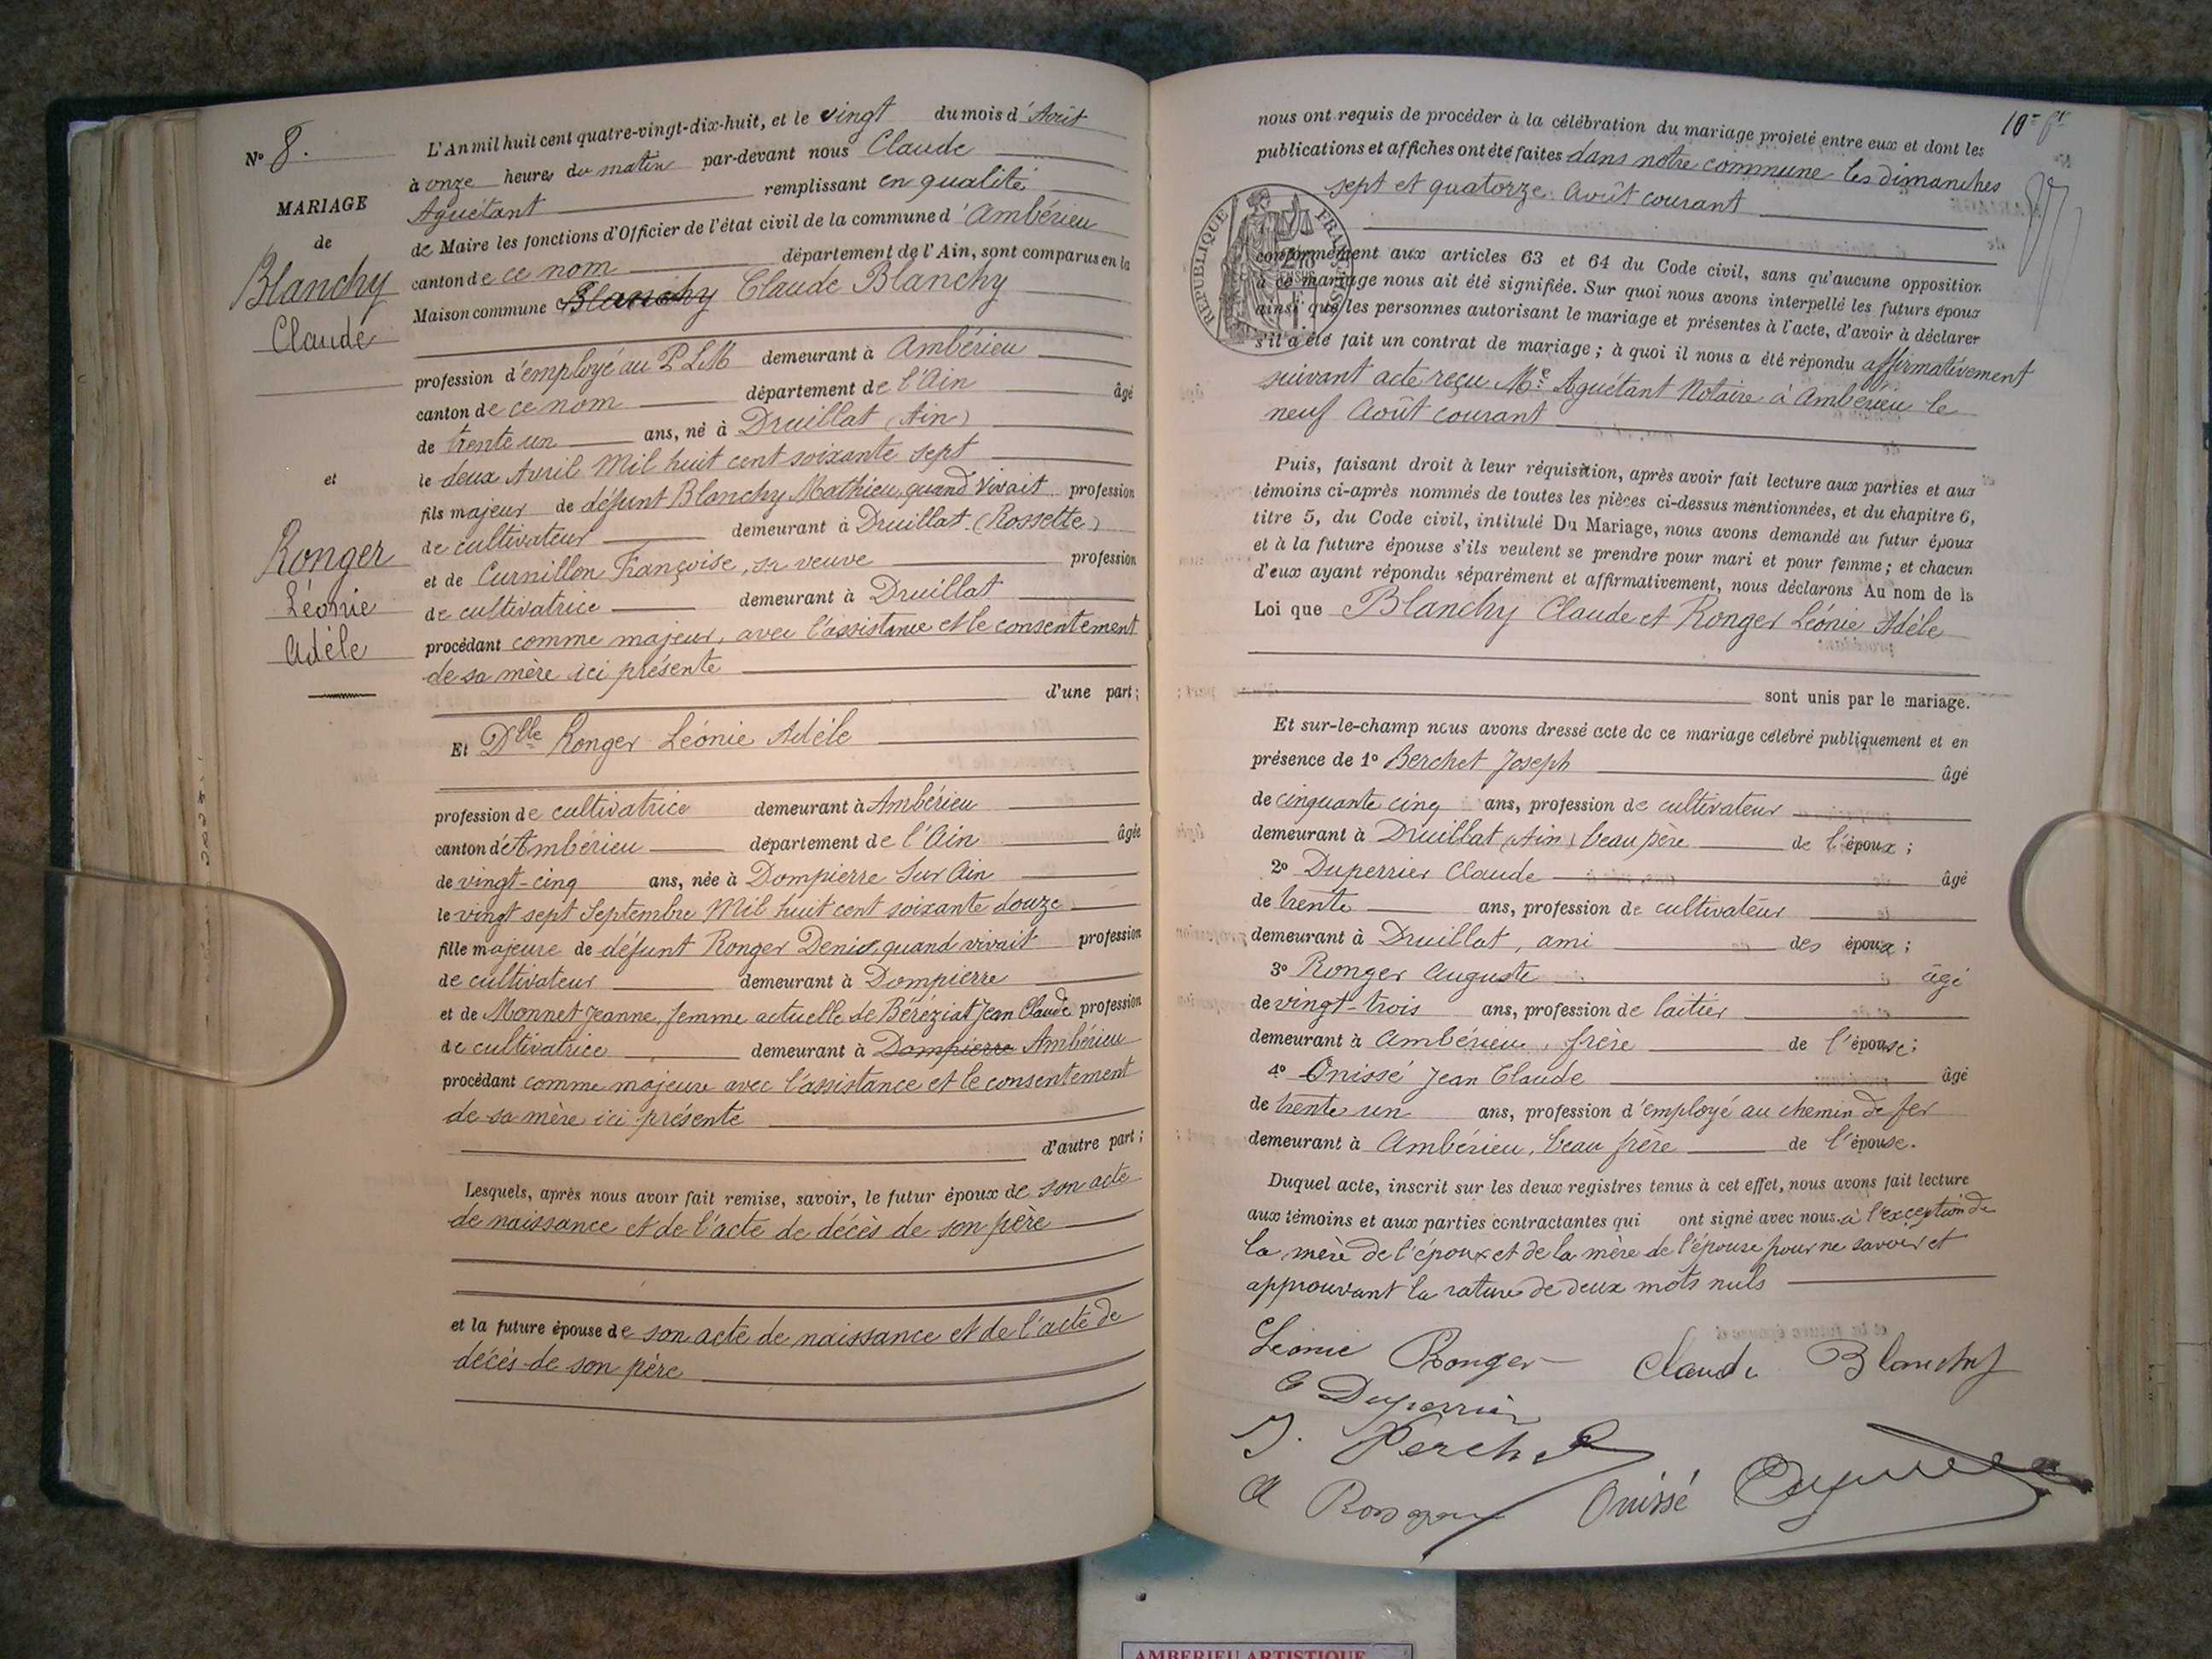 N° 8.
MARIAGE
de
Blanchy
Claude
et
Ronger
Léonie
Adèle
L'An mil huit cent quatre-vingt-dix-huit, et le vingt du mois d'Août
à onze heures du matin par-devant nous Claude
Aguétant remplissant en qualité
de Maire les fonctions d'Officier de l'état civil de la commune d'Ambérieu
canton de ce nom département de l'Ain, sont comparus en la
Maison commune Blanchy Claude Blanchy
profession d'employé au P L M demeurant à Ambérieu
canton de ce nom département de l'Ain âgé
de trente un ans, né à Druillat (Ain)
le deux Avril Mil huit cent soixante sept
fils majeur de défunt Blanchy Mathieu, quand vivait profession
de cultivateur demeurant à Druillat (Rossette)
et de Curnillon Françoise, sa veuve profession
de cultivatrice demeurant à Druillat
procédant comme majeur, avec l'assistance et le consentement
de sa mère ici présente
d'une part;
Et Dlle Ronger Léonie Adèle
profession de cultivatrice demeurant à Ambérieu
canton d'Ambérieu département de l'Ain âgée
de vingt-cinq ans, née à Dompierre Sur Ain
le vingt sept Septembre Mil huit cent soixante douze
fille majeure de défunt Ronger Denis, quand vivait profession
de cultivateur demeurant à Dompierre
et de Monnet Jeanne, femme actuelle de Béréziat Jean Claude profession
de cultivatrice demeurant à Dompierre Ambérieu
procédant comme majeure avec l'assistance et le consentement
de sa mère ici présente
d'autre part;
Lesquels, après nous avoir fait remise, savoir, le futur époux de son acte
de naissance et de l'acte de décès de son père
et la future épouse de son acte de naissance et de l'acte de
décès de son père
nous ont requis de procéder à la célébration du mariage projeté entre eux et dont les
publications et affiches ont été faites dans notre commune les dimanches
sept et quatorze Août courant
REPUBLIQUE FRANÇAISE
conformément aux articles 63 et 64 du Code civil, sans qu'aucune opposition
à ce mariage nous ait été signifiée. Sur quoi nous avons interpellé les futurs époux
ainsi que les personnes autorisant le mariage et présentes à l'acte, d'avoir à déclarer
s'il a été fait un contrat de mariage; à quoi il nous a été répondu affirmativement
suivant acte reçu Me Aguétant Notaire à Ambérieu le
neuf Août courant
Puis, faisant droit à leur réquisition, après avoir fait lecture aux parties et aux
témoins ci-après nommés de toutes les pièces ci-dessus mentionnées, et du chapitre 6,
titre 5, du Code civil, intitulé Du Mariage, nous avons demandé au futur époux
et à la future épouse s'ils veulent se prendre pour mari et pour femme; et chacun
d'eux ayant répondu séparément et affirmativement, nous déclarons Au nom de la
Loi que Blanchy Claude et Ronger Léonie Adèle
sont unis par le mariage.
Et sur-le-champ nous avons dressé acte de ce mariage célébré publiquement et en
présence de 1° Berchet Joseph âgé
de cinquante cinq ans, profession de cultivateur
demeurant à Druillat (Ain) beau père de l'époux;
2° Duperrier Claude âgé
de trente ans, profession de cultivateur
demeurant à Druillat, ami des époux;
3° Ronger Auguste âgé
de vingt-trois ans, profession de laitier
demeurant à Ambérieu, frère de l'épouse;
4° Onissé Jean Claude âgé
de trente un ans, profession d'employé au chemin de fer
demeurant à Ambérieu, beau frère de l'épouse.
Duquel acte, inscrit sur les deux registres tenus à cet effet, nous avons fait lecture
aux témoins et aux parties contractantes qui ont signé avec nous à l'exception de
la mère de l'époux et de la mère de l'épouse pour ne savoir et
approuvant la rature de deux mots nuls
Léonie Ronger Claude Blanchy
C Duperrier
J. Berchet
A Ronger Onissé
AMBERIEU ARTISTIQUE